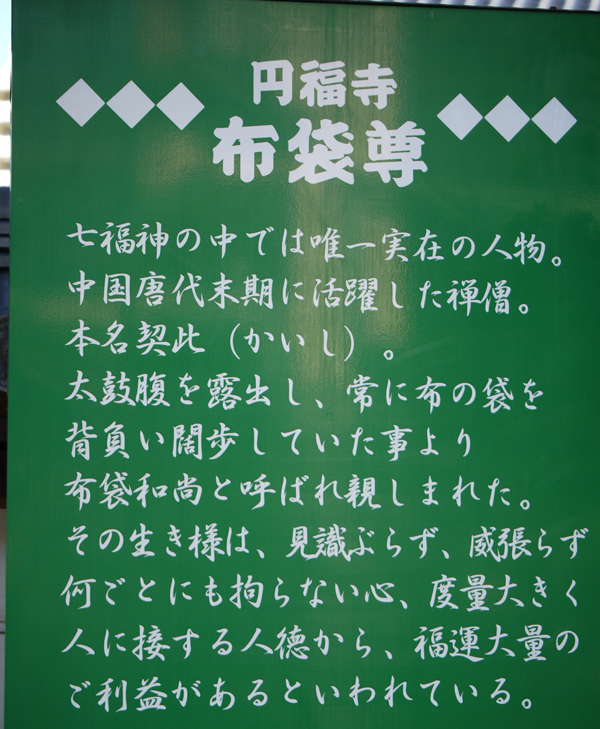 円福寺
布袋尊
七福神の中では唯一実在の人物。
中国唐代末期に活躍した禅僧。
本名契此（かいし）。
太鼓腹を露出し、常に布の袋を
背負い闊歩していた事より
布袋和尚と呼ばれ親しまれた。
その生き様は、見識ぶらず、威張らず
何ごとにも拘らない心、度量大きく
人に接する人徳から、福運大量の
ご利益があるといわれている。